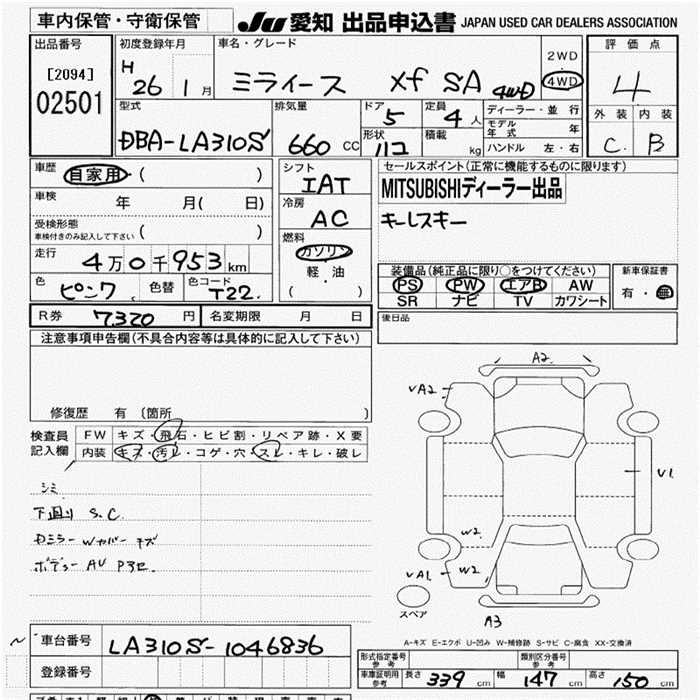 車内保管・守衛保管
JU 愛知 出品申込書 JAPAN USED CAR DEALERS ASSOCIATION
出品番号
[2094]
02501
初度登録年月
H 26 1月
車名・グレード
ミライース Xf SA 4WD
2WD
・
4WD
評価点
4
外装 内装
C. B
型式
DBA-LA310S
排気量
660 CC
ドア
5
定員
4人
形状
112
積載
kg
ディーラー・並行
モデル年式 年
ハンドル 左・右
車歴
自家用・( )
車検
年 月( 日)
受検形態
車検付きのみ記入して下さい ( )
走行
4万0千953km
色
ピンク
色替
色コード
T22.
シフト
IAT
冷房
AC
燃料
ガソリン
軽・油
( )
セールスポイント(正常に機能するものに限ります)
MITSUBISHIディーラー出品
キーレスキー
装備品(純正品に限り○をつけてください)
PS PW エアB AW
SR ナビ TV カワシート
新車保証書
有・無
後日品
R券 7,320 円
名変期限 月 日
注意事項申告欄(不具合内容等は具体的に記入して下さい)
修復歴 有 〔箇所 〕
検査員
記入欄
FW キズ・飛石・ヒビ割・リペア跡・X要
内装 キズ・汚レ・コゲ・穴・スレ・キレ・破レ
シミ
下廻り S.C.
Dミラー Wカバー キズ
ボデュー AU P3セ.
A2
VA2
V1
W2
VA1 W2
A3
スペア
A-キズ E-エクボ U-凹み W-補修跡 S-サビ C-腐食 XX-交換済
車台番号
LA310S-1046836
登録番号
形式指定番号
参考
類別区分番号
参考
車庫証明用
参考
長さ 339 cm 幅 147 cm 高さ 150 cm